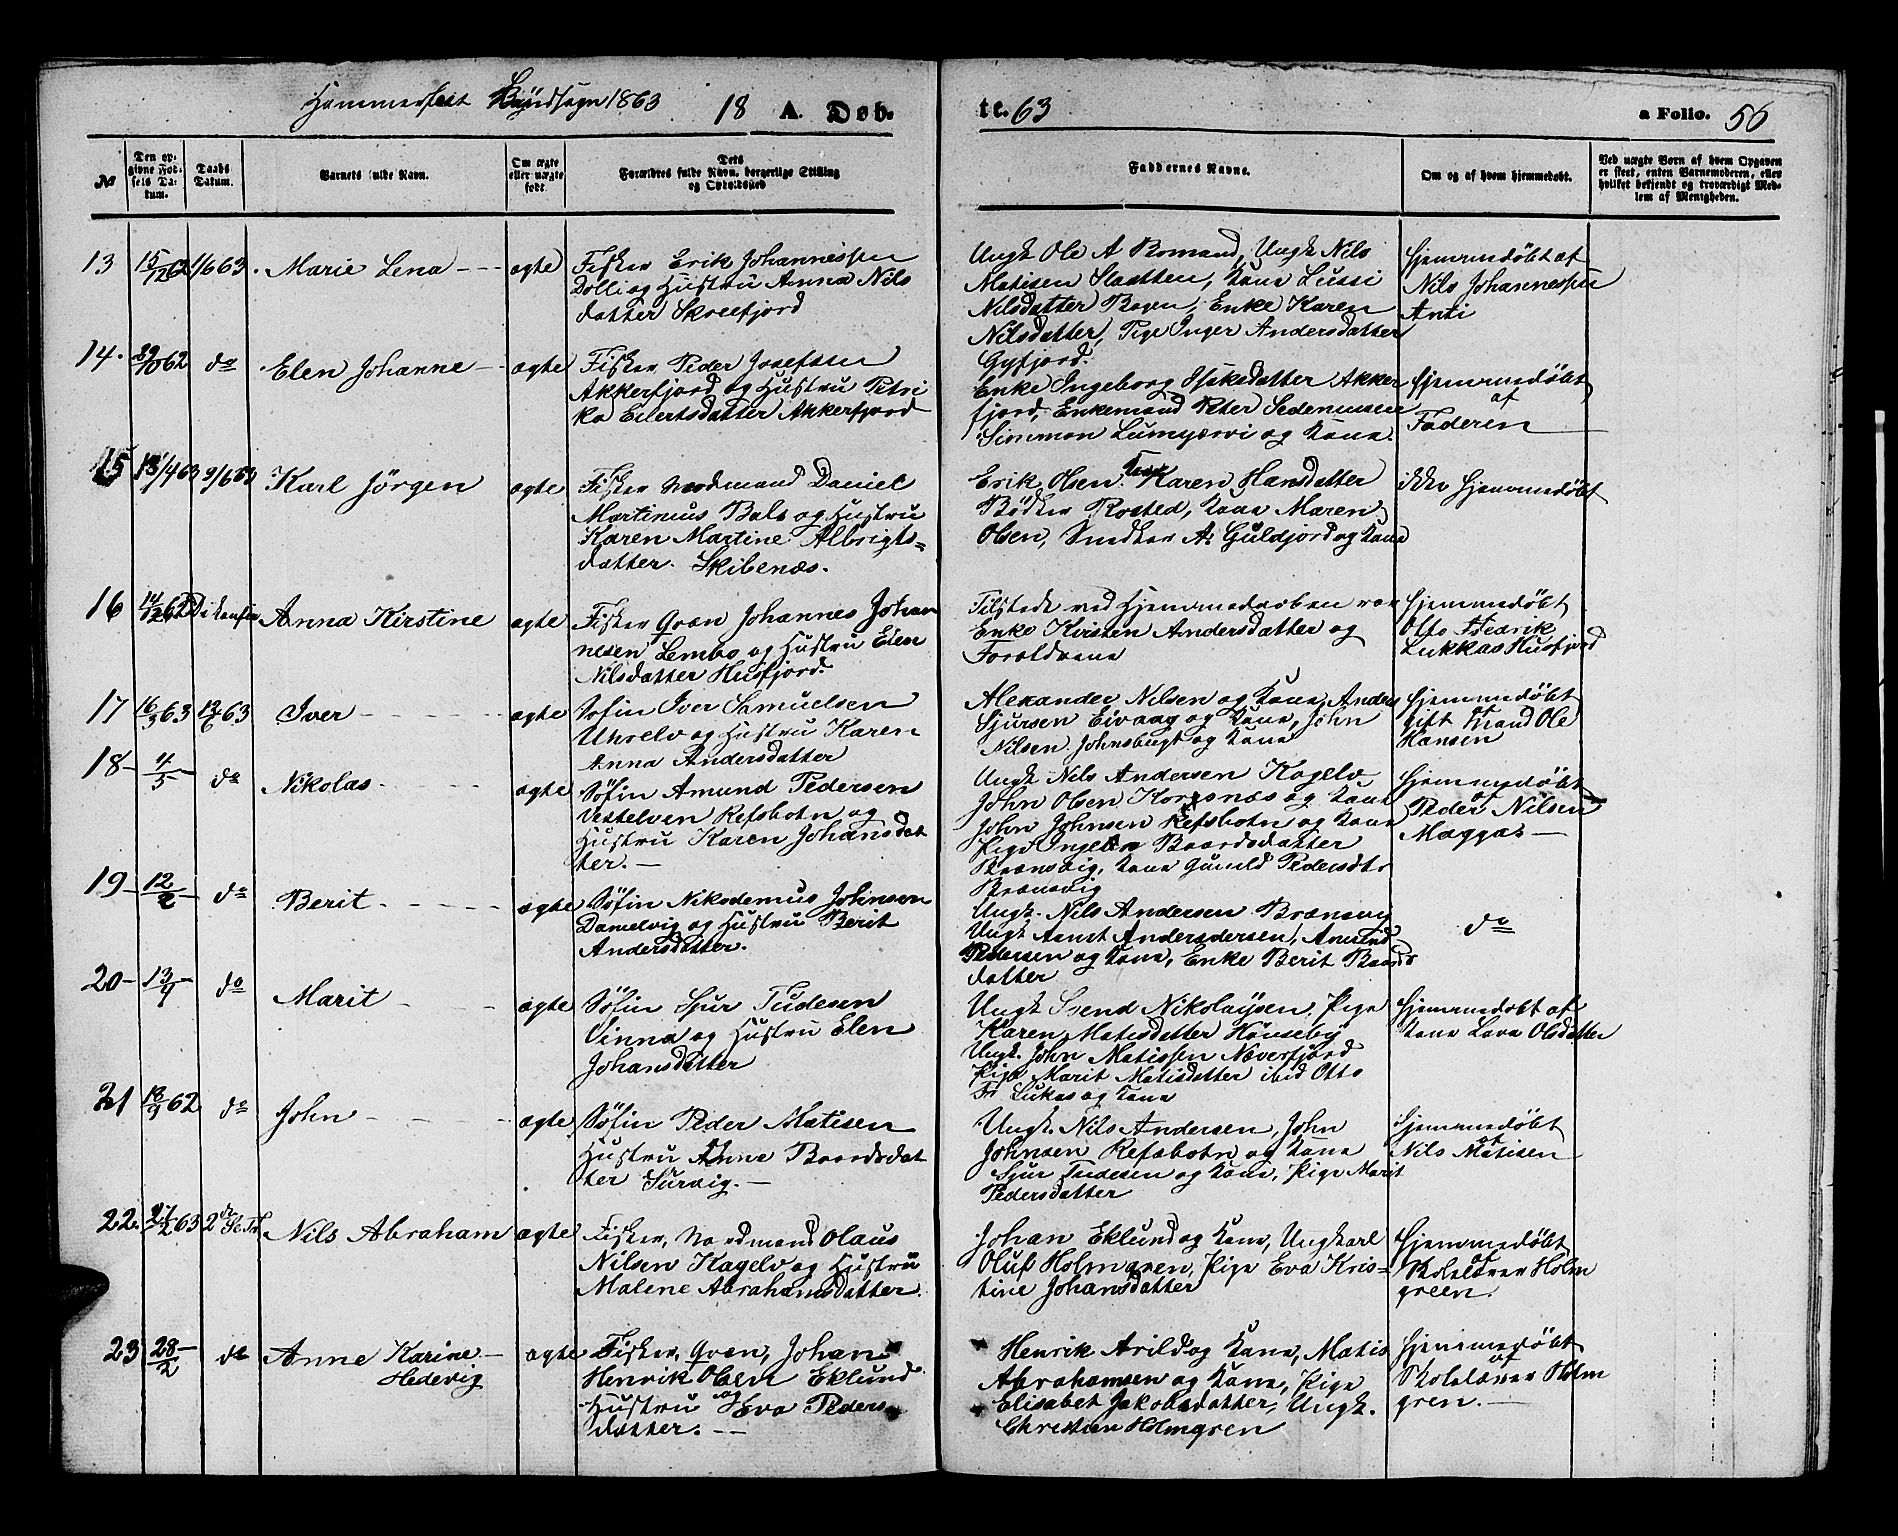 Hammerfest Landsogn 1863 18 A. Døb-
te. 63 a Folio. 56
№ Den opgivne Fødsels Datum. Daabs Datum. Barnets fulde Navn. Om ægte eller uægte født. Dets Forældres fulde Navn, borgerlige Stilling og Opholdssted
Faddernes Navne. Om og af hvem hjemmedøbt. Ved uægte Børn af hvem Opgaven er skeet, enten Barnemoderen, eller hvilket bekjendt og troværdigt Medlem af Menigheden.
13 15/12 62 1/6 63. Marie Lena - - - ægte
Fisker Erik Johannessen
og Hustru Anna Nils
datter Skreifjord
Ungk Ole A Romand, Ungk Nils
Matisen Slaatten, Kana Lussi
Nilsdatter Bogen, Enke Karen
Nilsdatter, Pige Inger Andersdatter
Gyfjord.
hjemmedøbt af
Nils Johannessen
Anti
14. 29/10 62 do Elen Johanne - ægte
Fisker Peder Josefsen
Akkerfjord og Hustru Petri
ka Eilertsdatter Akkerfjord
Enke Ingeborg Isaksdatter Akker
fjord, Enkemand Peter
Simmon Lumijærvi og Kana.
hjemmedøbt
af
Faderen
15 13/4 63 9/6 63 Karl Jörgen ægte
Fisker Nordmand Daniel
Martinius Bals og Hustru
Karen Martine Albrigts=
datter. Skibenæs.
Erik Olsen, Karen Hansdatter
Bödker Rosted, Kana Maren
Olsen, Snedker A: Guldjord og Kana
ikke hjemmedøbt
16 14/12 62 Anna Kirstine ægte
Fisker Qvæn Johannes Johan
nesen Lembo og Hustru Elen
Nilsdatter Husfjord.
Tilstede ved Hjemmedaaben var
Enke Kirsten Andersdatter og
Forældrene
hjemmedøbt
Otto Fredrik
Lukkas Husfjord
17 16/3 63 12/6 63 Iver - - - - ægte
Søfin Iver Samuelsen
Uhrelv og Hustru Karen
Anna Andersdatter
Alexander Nilsen og Kana, Anders
Sjursen Eivaag og Kana, John
Nilsen Johnsbugt og Kana
hjemmedøbt
af
gift Mand Ole
Hansen
18- 4/5 do Nikolas- - - - - ægte
Søfin Amund Pedersen
Vestelven Refsbotn og
Hustru Karen Johansdat
ter. -
Ungk Nils Andersen Kogelv
John Olsen Korsnæs og Kana
John Johnsen Refsbotn og Kana
Pige Baardsdatter
Brænsvig, Kana Gunild Pedersdtr
Brænsvig
hjemmedøbt
af
Peder Nilsen
Maggas -
19- 12/2 do Berit- - - - - ægte
Søfin Nikodemus Johnsen
Damelvig og Hustru Berit
Andersdatter.
Ungk. Nils Andersen Brænsvig
Ungk Aanst Andersdersen, Amund
Pedersen og Kana, Enke Berit Baards
datter
do
20- 13/4 do Marit - - ægte
Søfin Sjur Tudesen
Vinna og Hustru Elen
Johansdatter
Ungk Svend Nikolaysen, Pige
Karen Matisdatter Hönseby
Ungk. John Matissen Naverfjord
Pige Marit Matisdatter ibid Otto
Fr Lukas og Kana
hjemmedøbt af
Kana Lava Olsdatter
21 18/9 62 do John - - - - ægte
Søfin Peder Matisen
Hustru Anne Baardsdat
ter Survig. -
Ungk. Nils Andersen, John
Johnsen Refsbotn og Kana
Sjur Tudesen og Kana, Pige Marit
Pedersdatter
hjemmedøbt
af
Nils Matisen
22. 27/2 63 Nils Abraham ægte
Fisker, Nordmand Olaus
Nilsen Kogelv og Hustru
Malene Abrahamsdatter.
Johan Eklund og Kana, Ungkarl
Oluf Holmgren, Pige Eva Kris-
tine Johansdatter
hjemmedøbt
af
Skolelærer Holm
green.
23 28/2 do Anne Karine - ægte
Hedevig
Fisker, Qvæn, Johan
Henrik Olsen Eklund
og
Hustru Eva Peders
datter. - -
Henrik Arild og Kana, Matis
Abrahamsen og Kana, Pige
Elisabet Jakobsdatter, Ungk.
Christian Holmgren
hjemmedøbt
af
Skolelærer Holm
gren. -